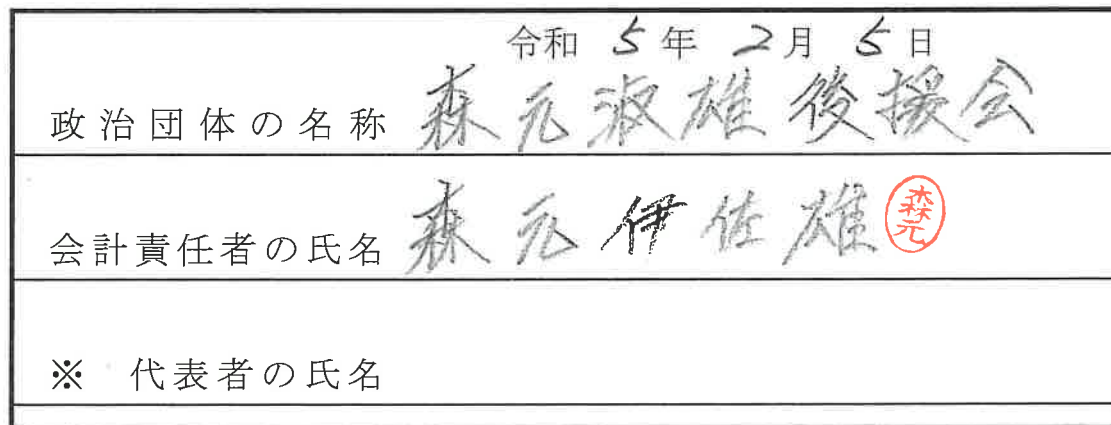 令和 5年 2月 5日
政治団体の名称 森元淑雄後援会
会計責任者の氏名 森元伊佐雄 森元
※ 代表者の氏名